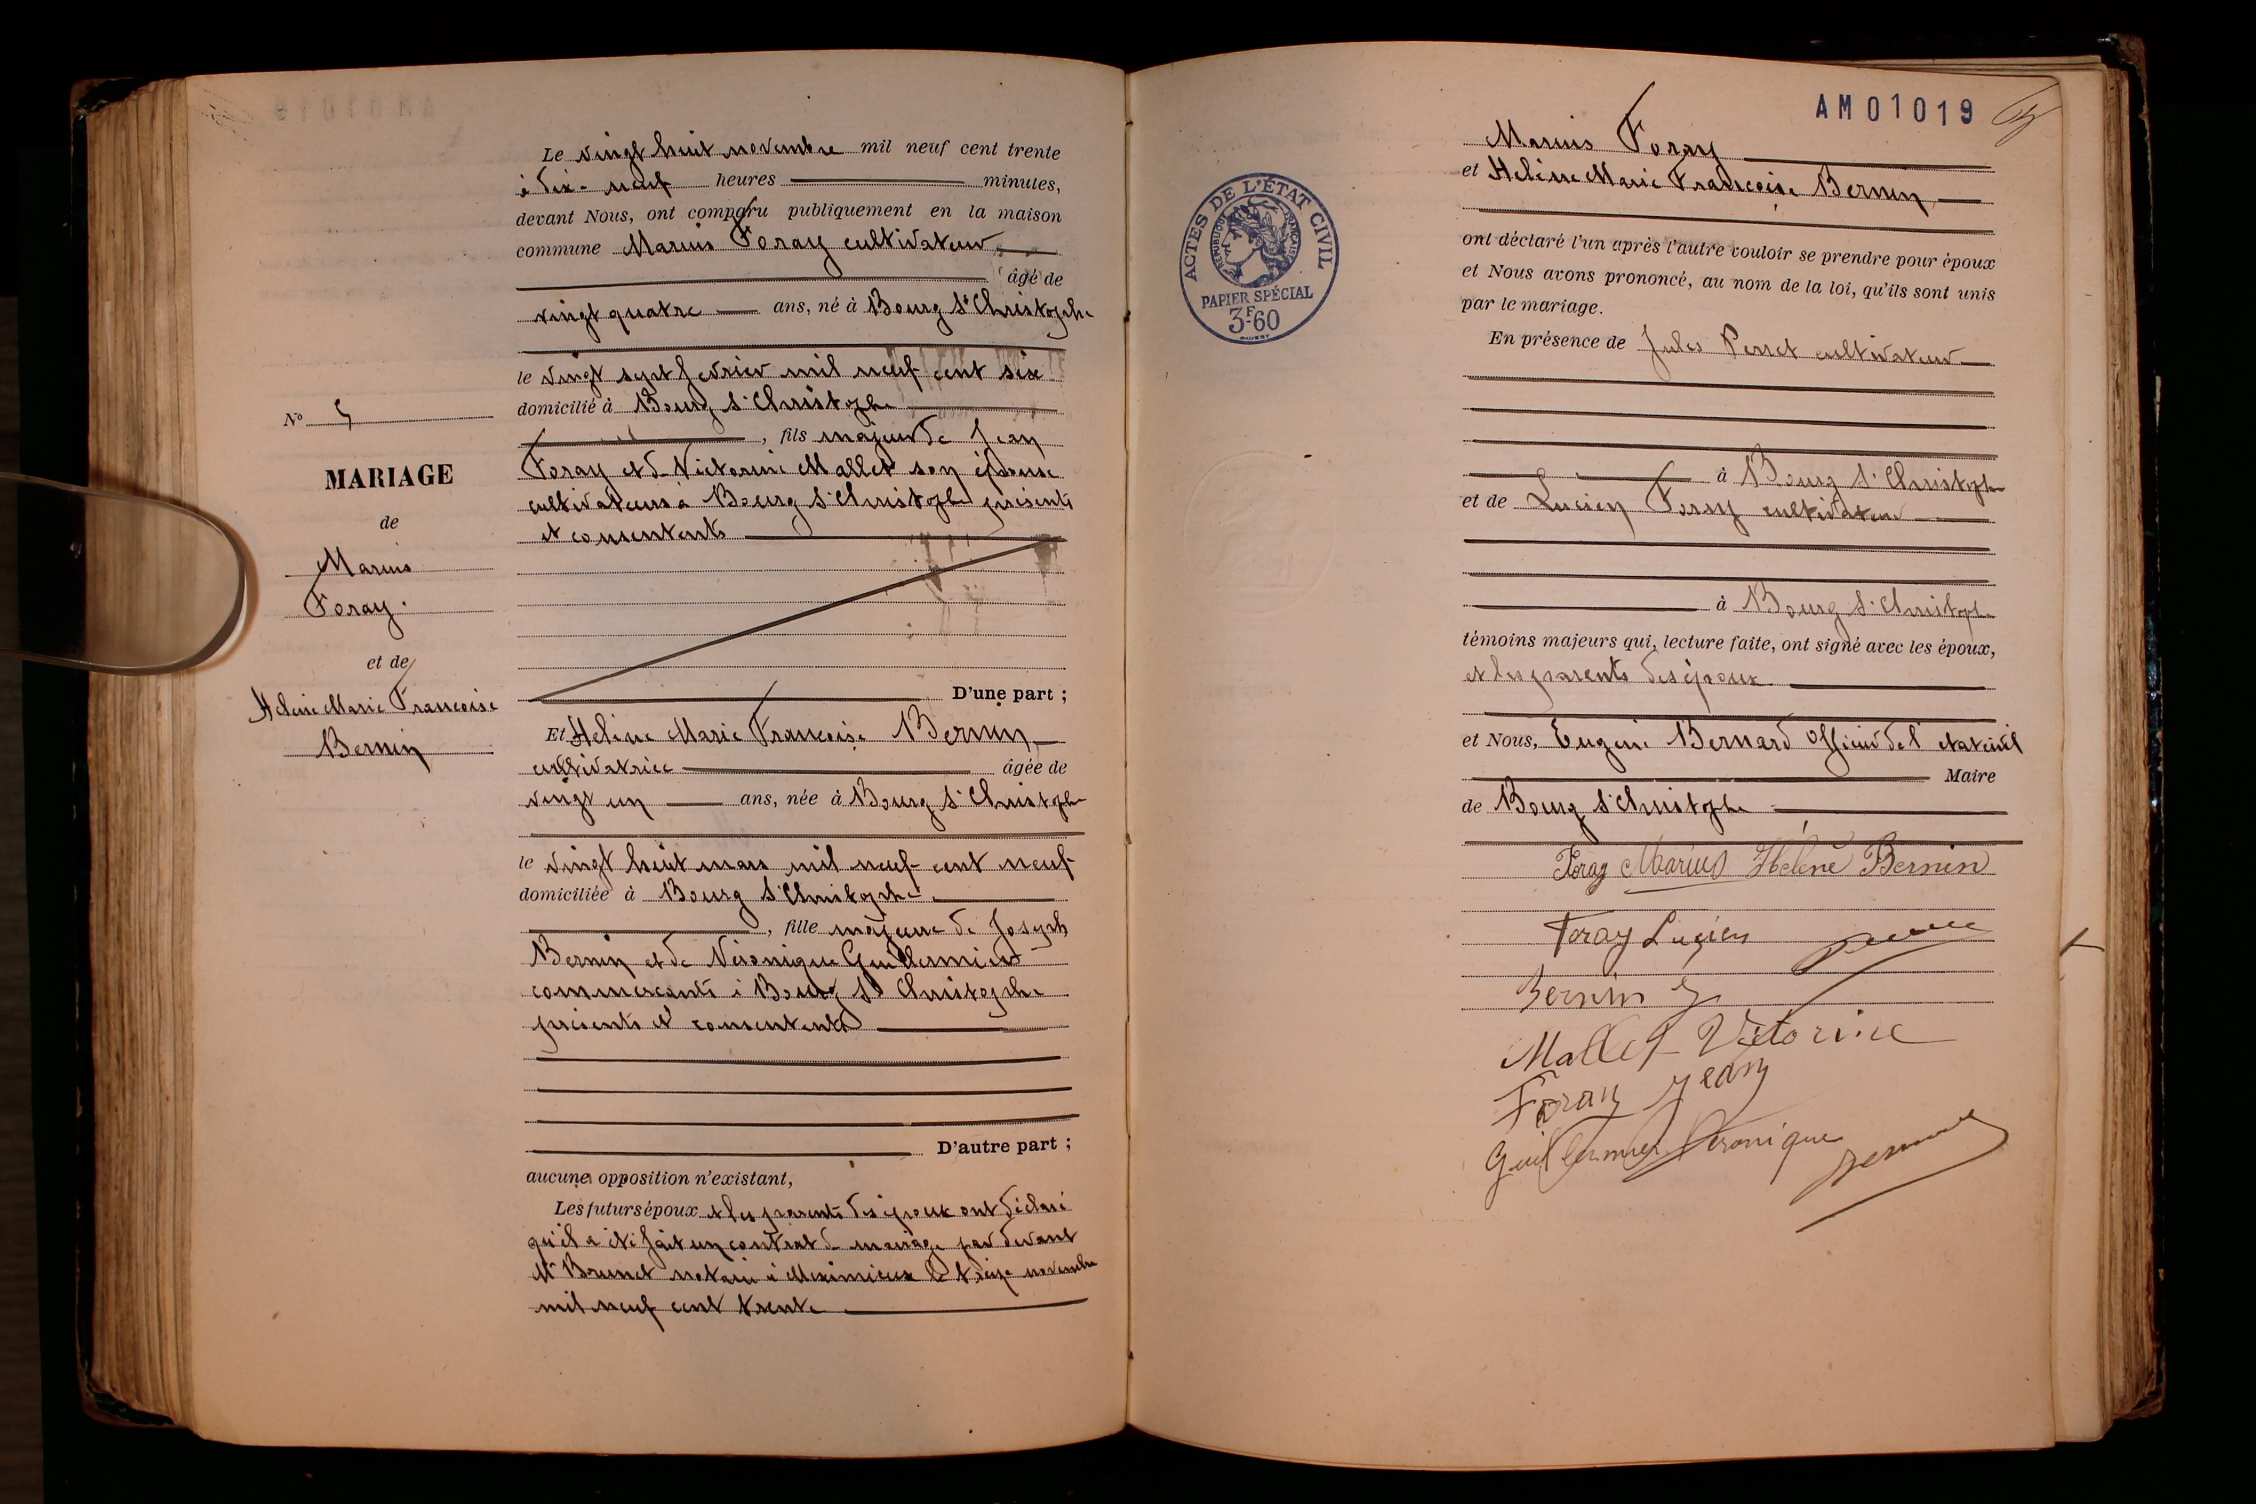 Le vingt huit novembre mil neuf cent trente
à dix-neuf heures minutes,
devant Nous, ont comparu publiquement en la maison
commune Marius Foray cultivateur
âgé de
vingt quatre ans, né à Bourg St Christophe
le vingt sept février mil neuf cent six
domicilié à Bourg St Christophe
, fils majeur de Jean
Foray et de Victorine Mallet son épouse
cultivateurs à Bourg St Christophe présents
et consentents
D'une part ;
No 5
MARIAGE
de
Marius
Foray.
et de
Helène Marie Françoise
Bernin
Et Helène Marie Françoise Bernin
cultivatrice âgée de
vingt un ans, née à Bourg St Christophe
le vingt huit mars mil neuf cent neuf
domiciliée à Bourg St Christophe
, fille majeure de Joseph
Bernin et de Véronique Guillermier
commerçants à Bourg St Christophe
présents et consentents
D'autre part ;
aucune opposition n'existant,
Les futurs époux et les parents des époux ont déclaré
qu'il a été fait un contrat de mariage par devant
Me Brunet notaire à Meximieux le treize novembre
mil neuf cent trente
AM01019
ACTES DE L'ÉTAT CIVIL
RÉPUBLIQUE FRANÇAISE
PAPIER SPÉCIAL
3F60
Marius Foray
et Helène Marie Françoise Bernin
ont déclaré l'un après l'autre vouloir se prendre pour époux
et Nous avons prononcé, au nom de la loi, qu'ils sont unis
par le mariage.
En présence de Jules Perret cultivateur
à Bourg St Christophe
et de Lucien Foray cultivateur
à Bourg St Christophe
témoins majeurs qui, lecture faite, ont signé avec les époux,
et les parents des époux
et Nous, Eugène Bernard officier de l'état civil
Maire
de Bourg St Christophe
Foray Marius Helène Bernin
Foray Lucien
Bernin J
Mallet Victorine
Foray Jean
Guillermier Véronique